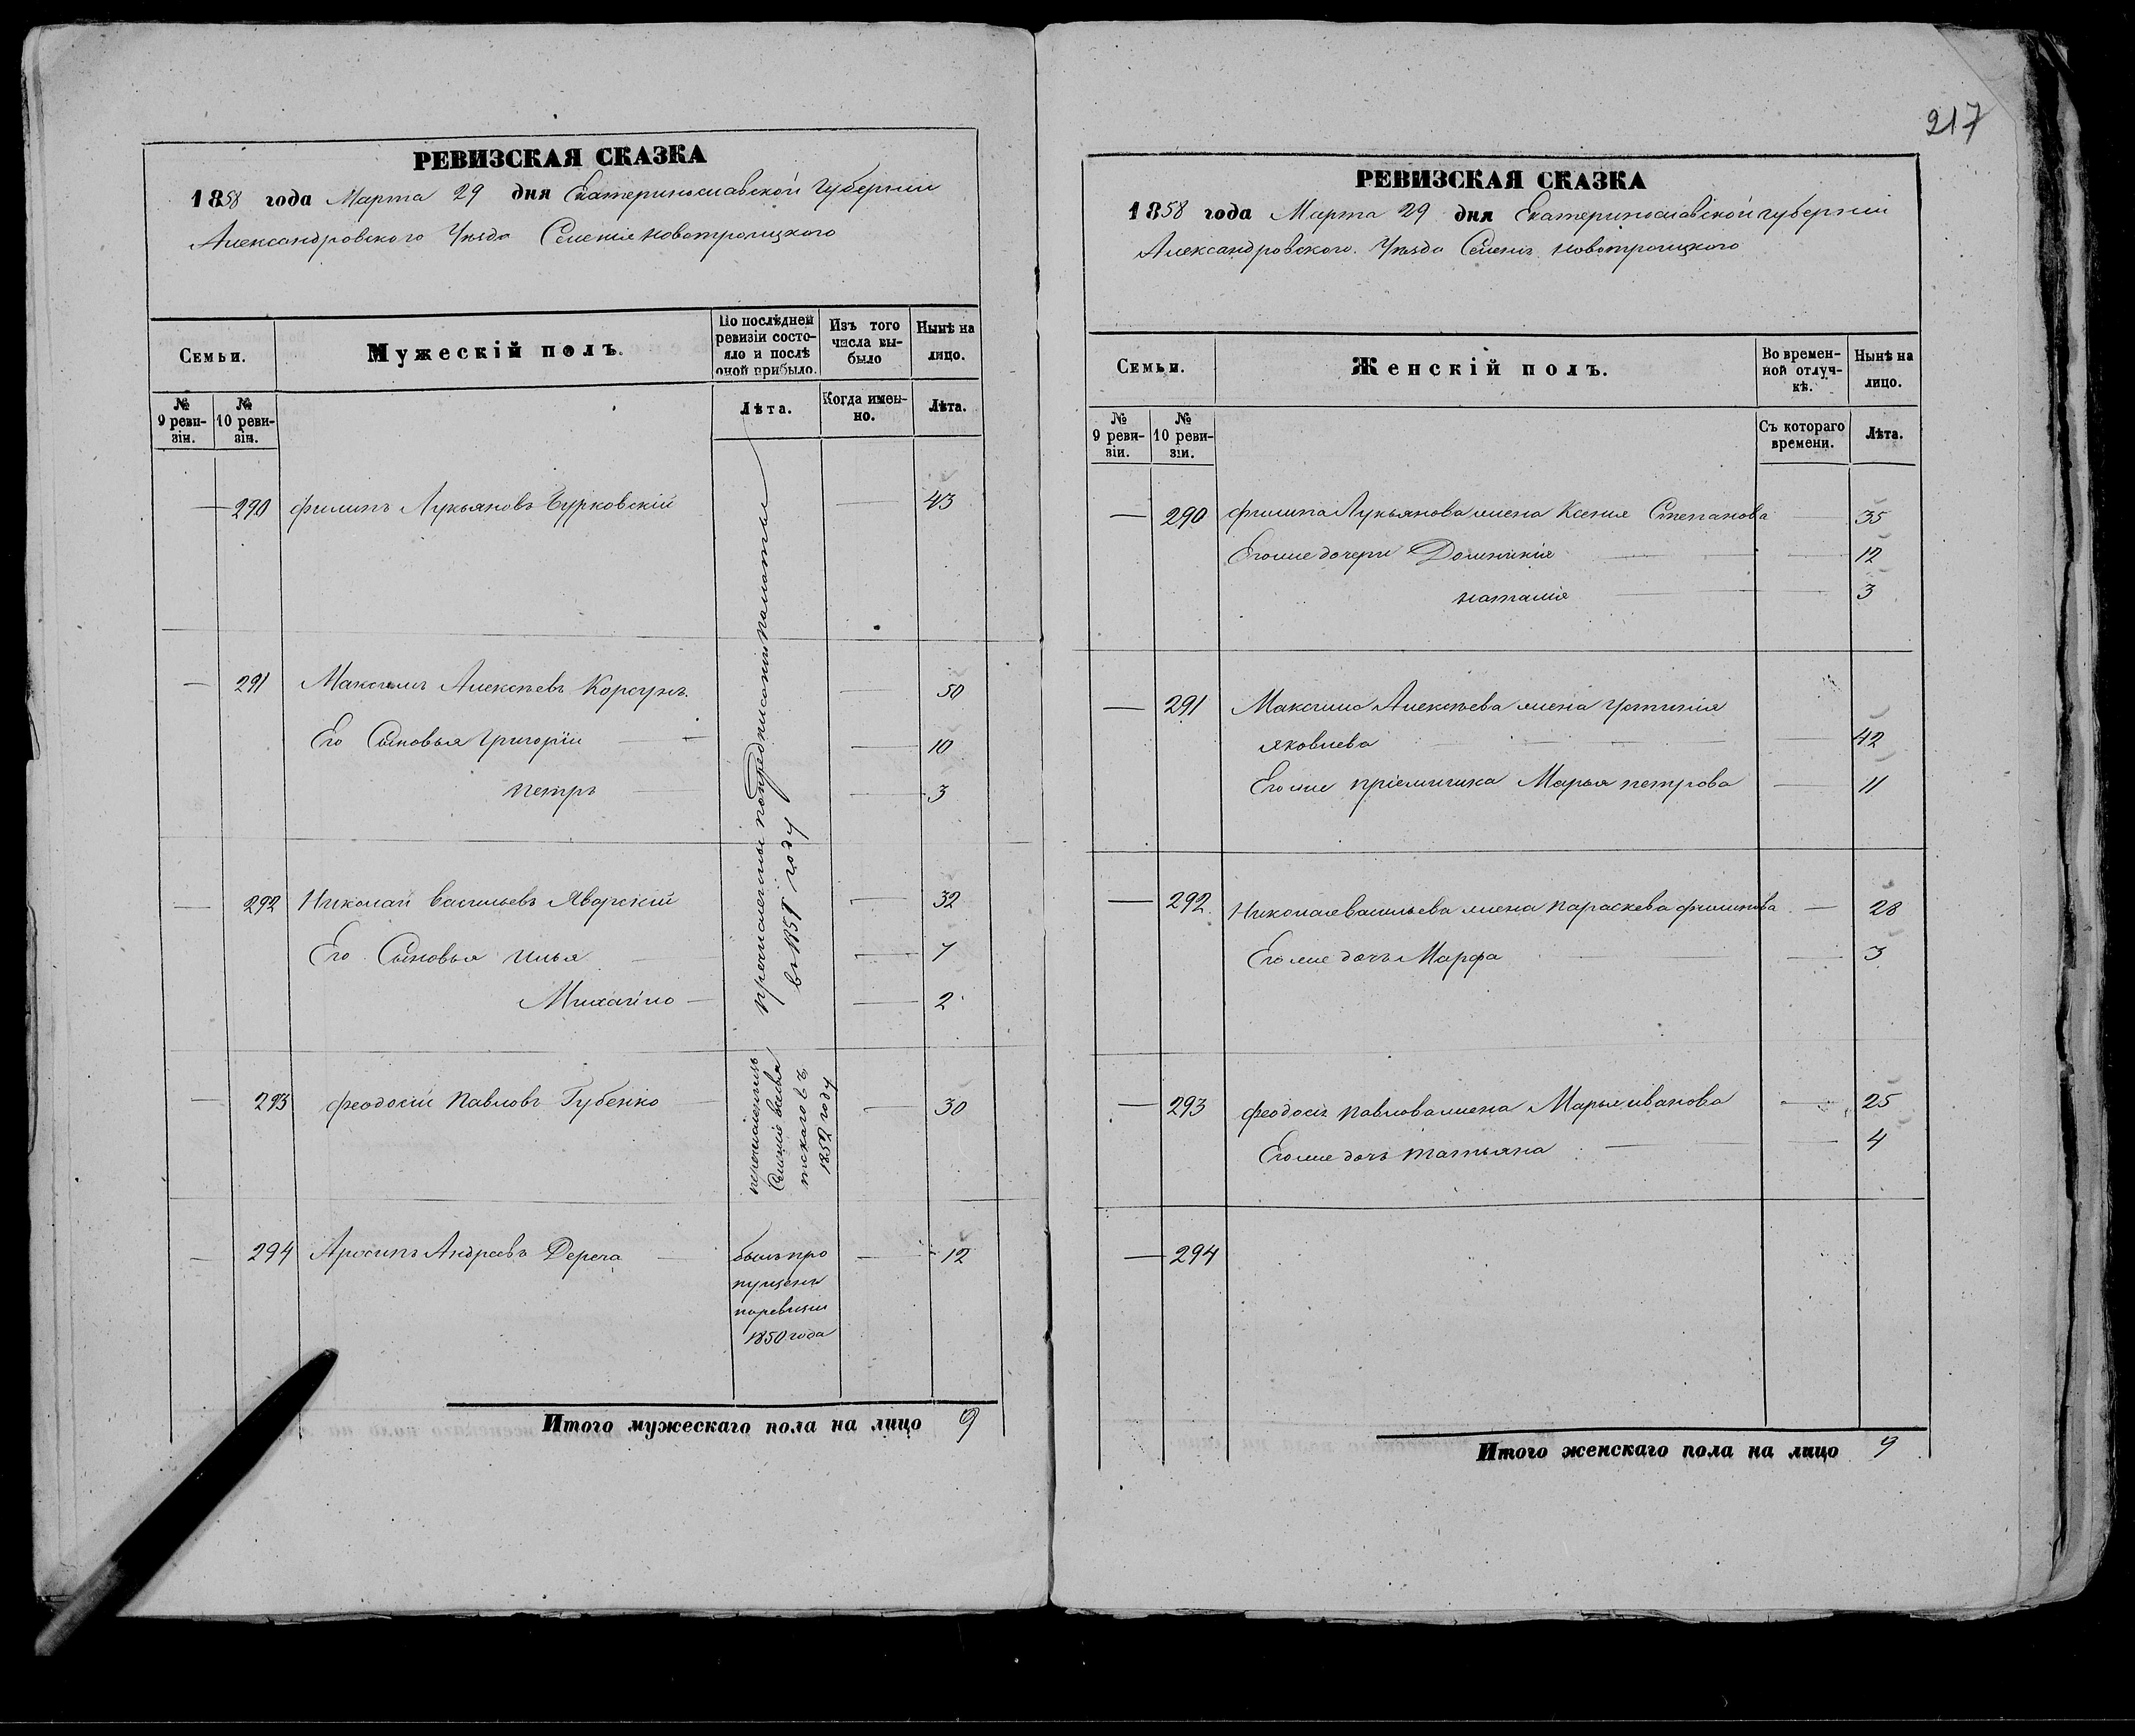 217
РЕВИЗСКАЯ СКАЗКА
1858 года Марта 29 дня Екатеринославской губерніи
Александровского Уѣзда Селенія Новотроицкого
Семьи.
Мужескій полъ.
По послѣдней ревизіи состояло и послѣ оной прибыло.
Изъ того числа выбыло
Нынѣ на лицо.
№ 9 ревизіи.
№ 10 ревизіи.
Лѣта.
Когда именно.
Лѣта.
— 290 Филипъ Лукьяновъ Бурковскій — 43
— 291 Максимъ Алексѣевъ Корсунъ. — 50
Его Сыновья Григорій — — 10
Петръ — — 3
— 292 Николай Васильевъ Яворскій — 32
Его Сыновья Илья — — 7
Михайло — — 2
причислены по предписанію палаты
въ 1857 году
— 293 Феодосій Павловъ Губенко — — 30
перечисленъ
Селенія
1852 году
— 294 Архипъ Андреевъ Дереча — былъ про — 12
пущенъ
по ревизіи
1850 года
Итого мужескаго пола на лицо 9
РЕВИЗСКАЯ СКАЗКА
1858 года Марта 29 дня Екатеринославской губерніи
Александровского. Уѣзда Селенія Новотроицкого
Семьи.
Женскій полъ.
Во временной отлучкѣ.
Нынѣ на лицо.
№ 9 ревизіи.
№ 10 ревизіи.
Съ котораго времени.
Лѣта.
— 290 Филипа Лукьянова жена Ксенія Степанова — 35
Его же дочери Домникія — — 12
Наталія — — 3
— 291 Максима Алексѣева жена Устинія
Яковлева — — 42
Его же пріемышка Марья Петрова — 11
— 292. Николая Васильева жена Параскева Филипова — 28
Его же дочь Марфа — — 3
— 293 Феодосія Павлова жена Марья Иванова — 25
Его же дочь Татьяна — — 4
— 294
Итого женскаго пола на лицо 9